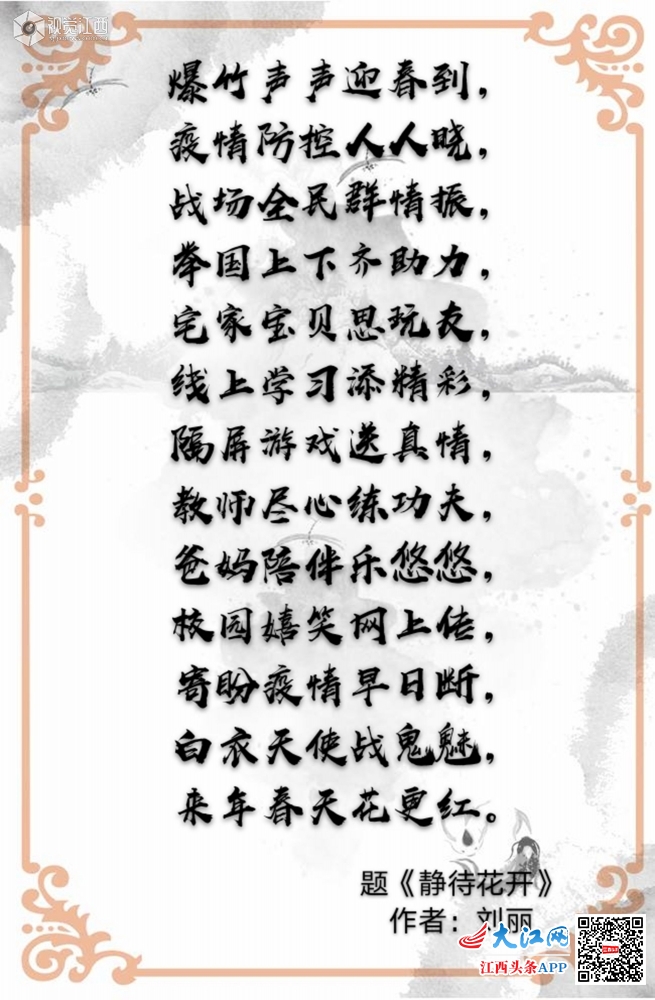 视觉江西
爆竹声声迎春到，
疫情防控人人晓，
战场全民群情振，
举国上下齐助力，
宅家宝贝思玩友，
线上学习添精彩，
隔屏游戏送真情，
教师尽心练功夫，
爸妈陪伴乐悠悠，
校园嬉笑网上传，
寄盼疫情早日断，
白衣天使战鬼魅，
来年春天花更红。
题《静待花开》
作者：刘丽
大江网
江西头条APP